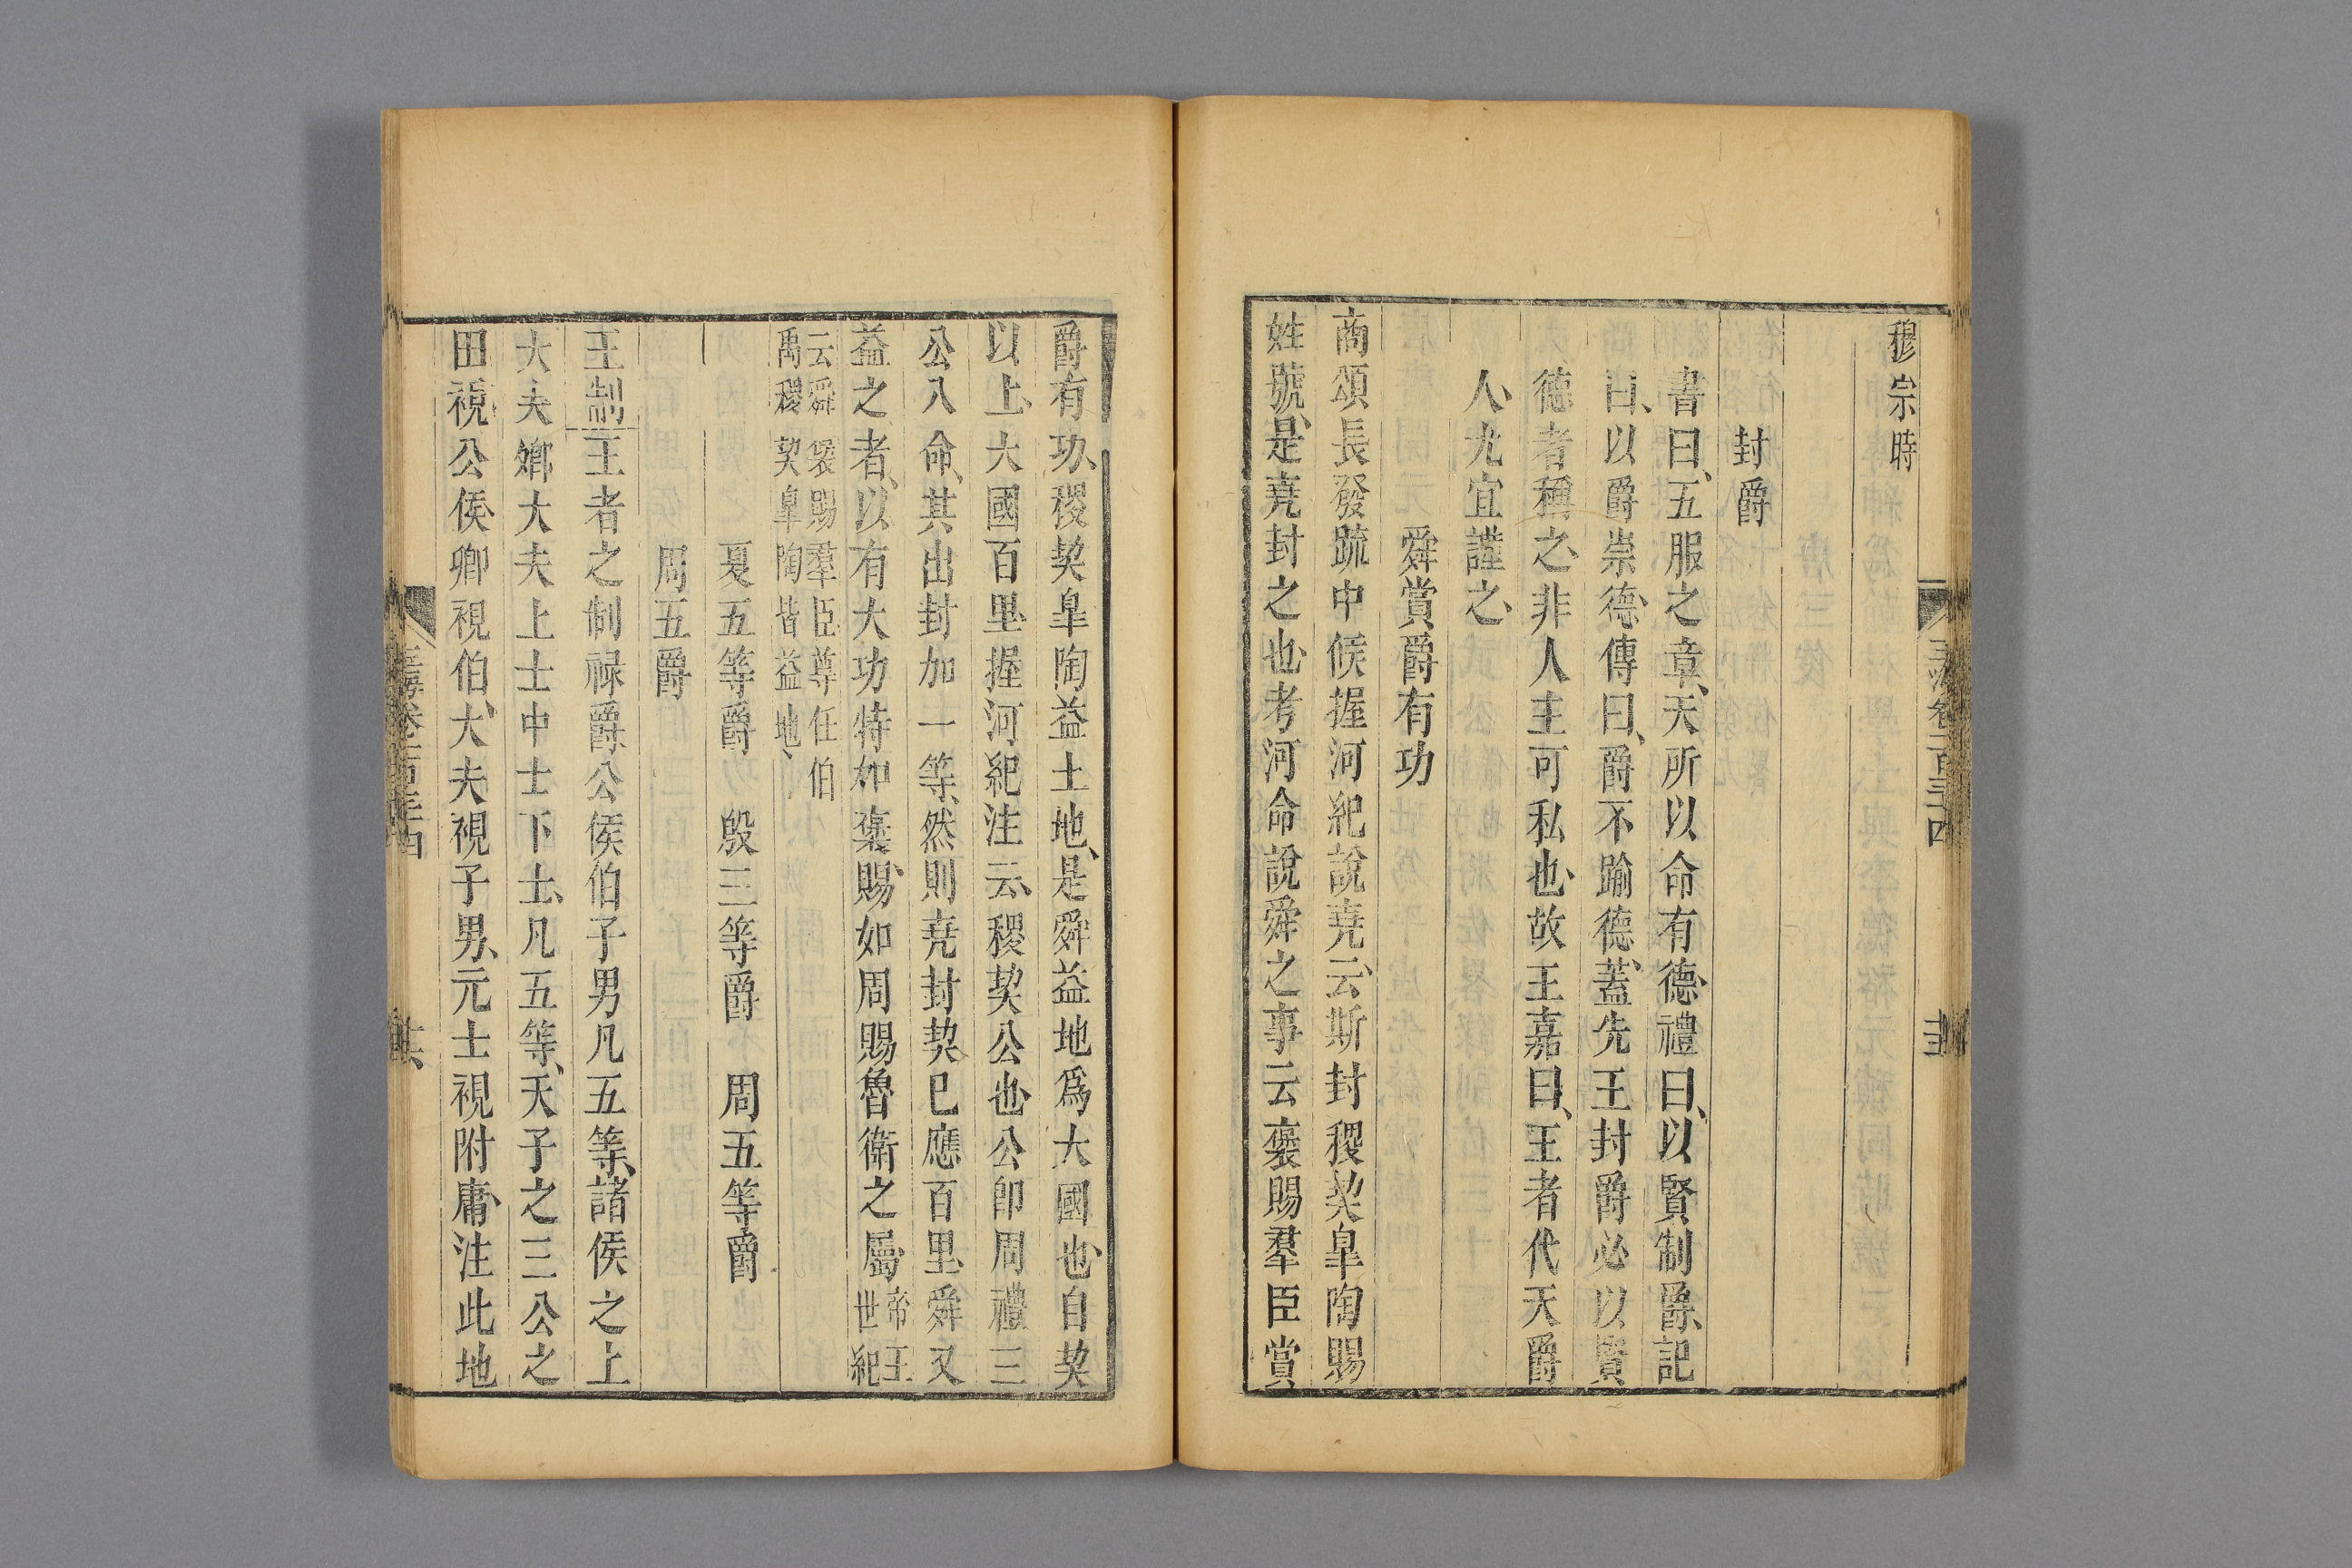 穆宗時
封爵
書曰、五服之章、天所以命有德、禮曰、以賢制爵、記
曰、以爵崇德、傳曰、爵不踰德、蓋先王封爵必以賢
德者稱之、非人主可私也、故王嘉曰、王者代天爵
人、尤宜謹之、
舜賞爵有功
商頌長發䟽中候握河紀說堯云、斯封稷契皐陶賜
姓號、是堯封之也、考河命說舜之事云褒賜羣臣賞
爵有功、稷契皐陶益土地、是舜益地爲大國也、自契
以上、大國百里、握河紀注云、稷契公也、公卽周禮三
公八命、其出封加一等、然則堯封契已應百里、舜又
益之者、以有大功特如褒賜、如周賜魯衛之屬帝王世紀
云舜褒賜羣臣尊任伯禹稷契皐陶皆益地、
夏五等爵 殷三等爵 周五等爵
周五爵
王制王者之制祿爵公侯伯子男凡五等、諸侯之上
大夫卿大夫上士中士下士、凡五等、天子之三公之
田視公侯、卿視伯、大夫視子男、元士視附庸、注此地